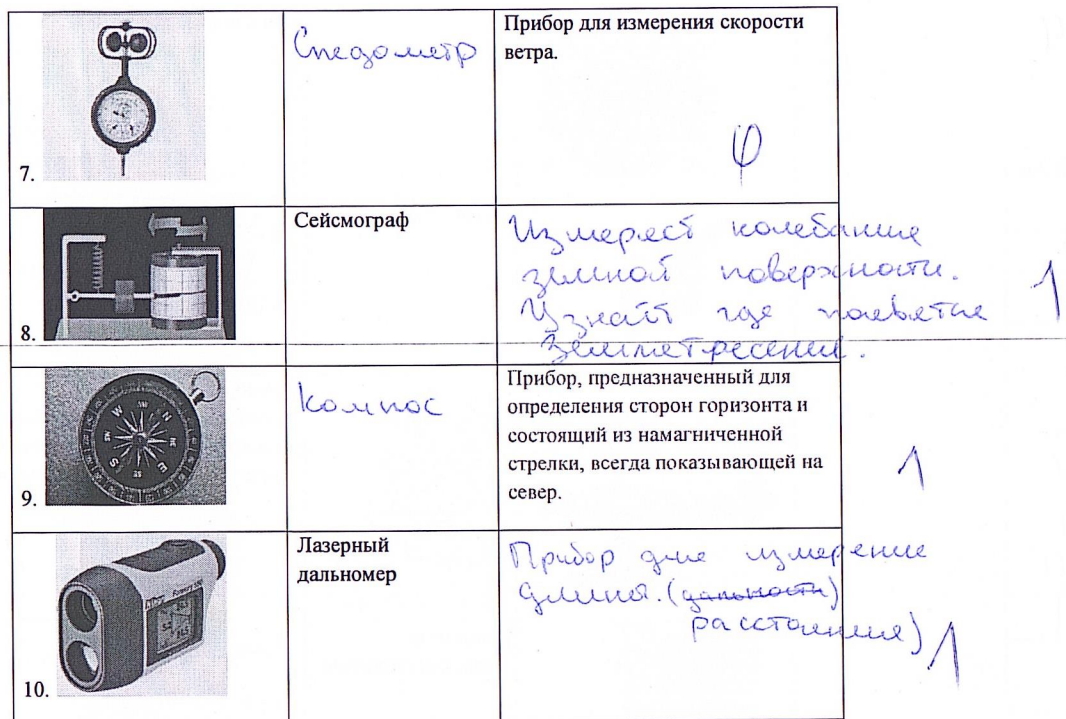 7.
Спедометр
Прибор для измерения скорости
ветра.
φ
8.
Сейсмограф
Измеряет колебание
земной поверхности.
Узнаёт где
землетресение.
1
9.
Компос
Прибор, предназначенный для
определения сторон горизонта и
состоящий из намагниченной
стрелки, всегда показывающей на
север.
1
10.
Лазерный
дальномер
Прибор для измерение
длины. (дальности)
расстояния)
1